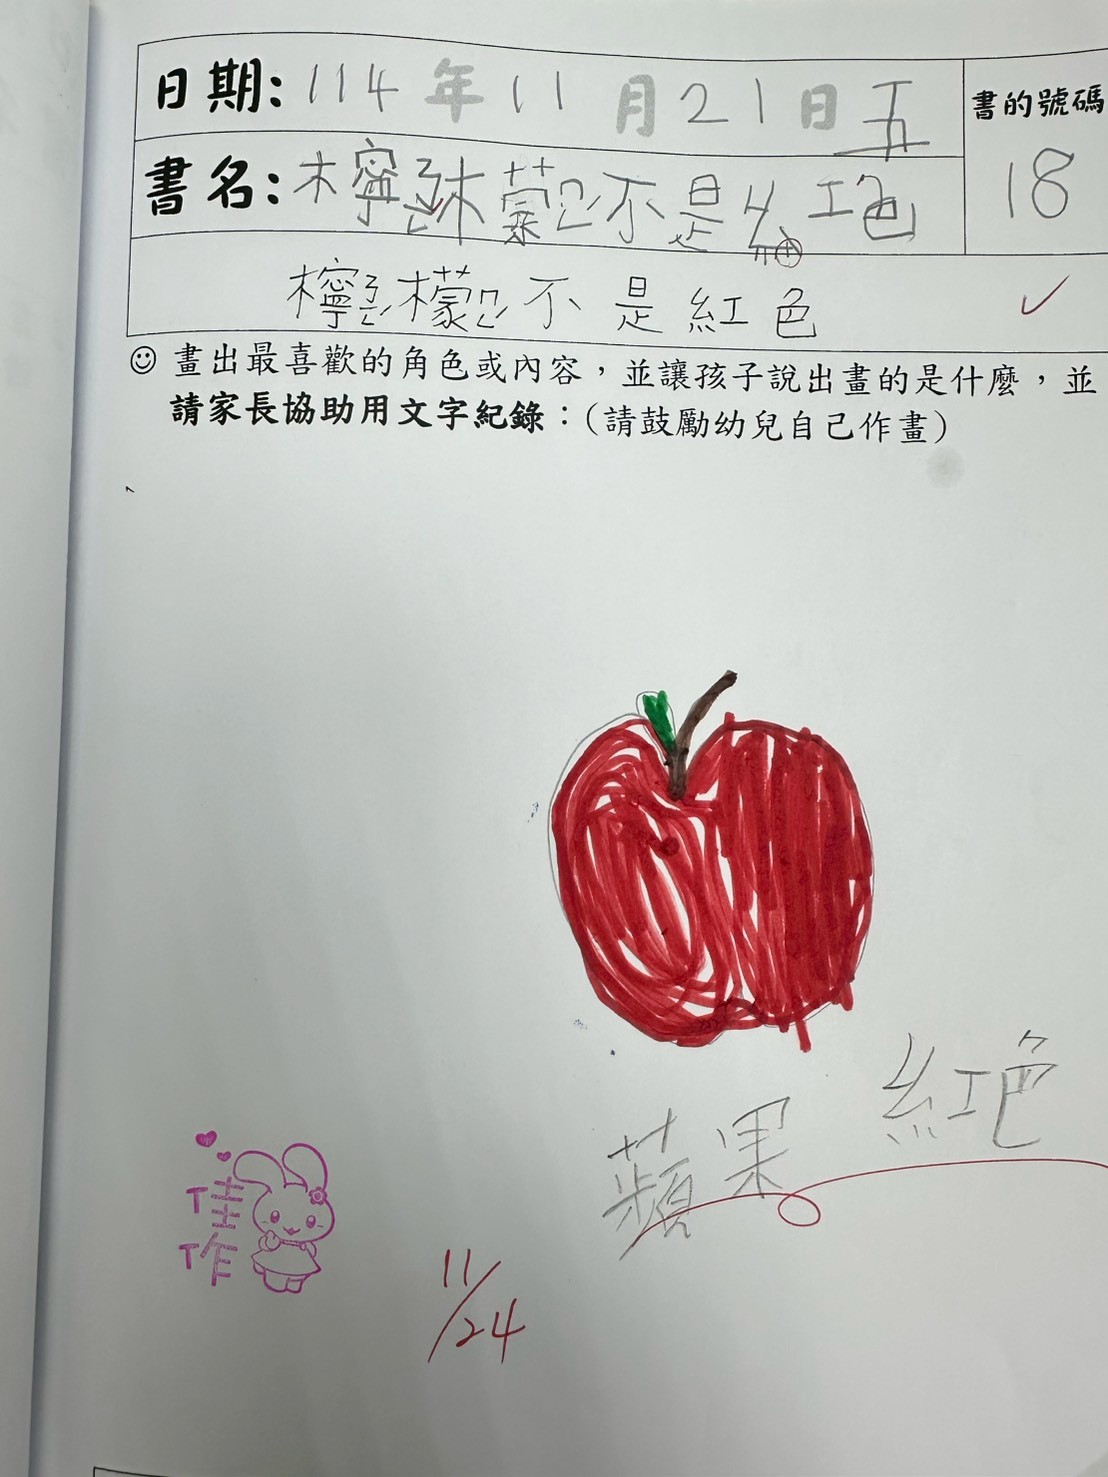 日期：114年11月21日五
書的號碼
書名：檸檬不是紅色
18
檸檬不是紅色
畫出最喜歡的角色或內容，並讓孩子說出畫的是什麼，並
請家長協助用文字紀錄：（請鼓勵幼兒自己作畫）
蘋果 紅色
佳作
11/24